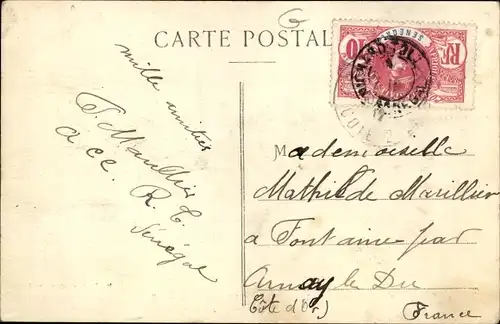 CARTE POSTALE
10
RF
SENEGAL
mille amitiés
a cc. R. T.
Sénégal
Mademoiselle
Mathilde Marillier
a Fontaine par
Arnay le Duc
(Côte d'Or)
France